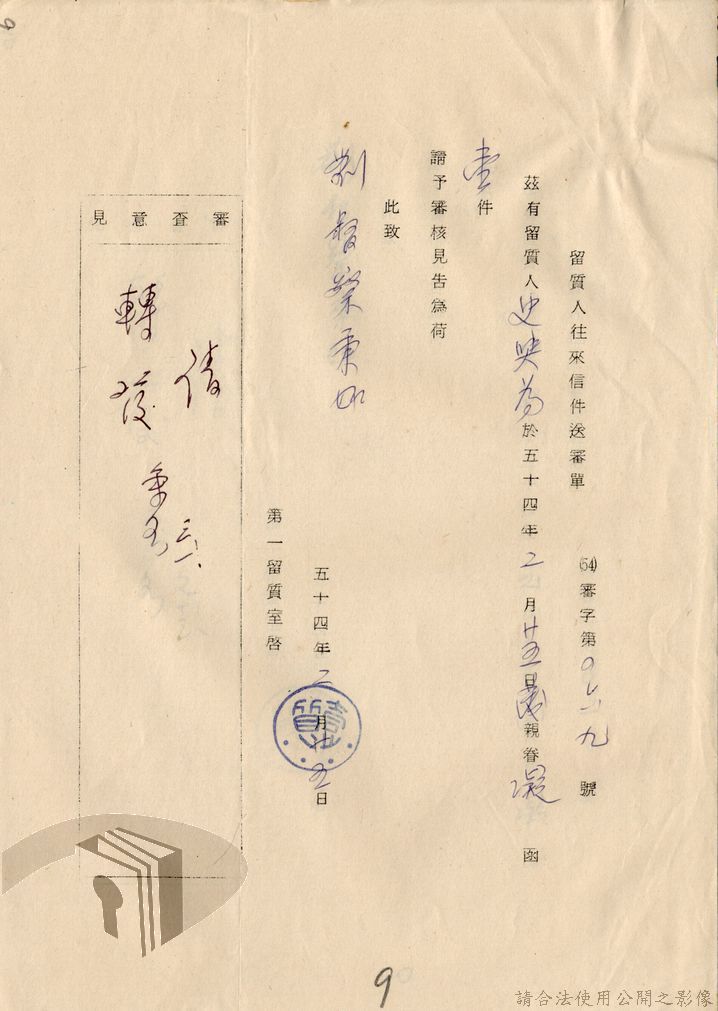 留質人往來信件送審單
(54)審字第0六九號
茲有留質人史與為於五十四年二月廿五日 親眷 函
壹件
請予審核見告為荷
此致
劉督察秉如
第一留質室啓
五十四年二月廿五日
審查意見
請
轉發
三.一.
9
請合法使用公開之影像